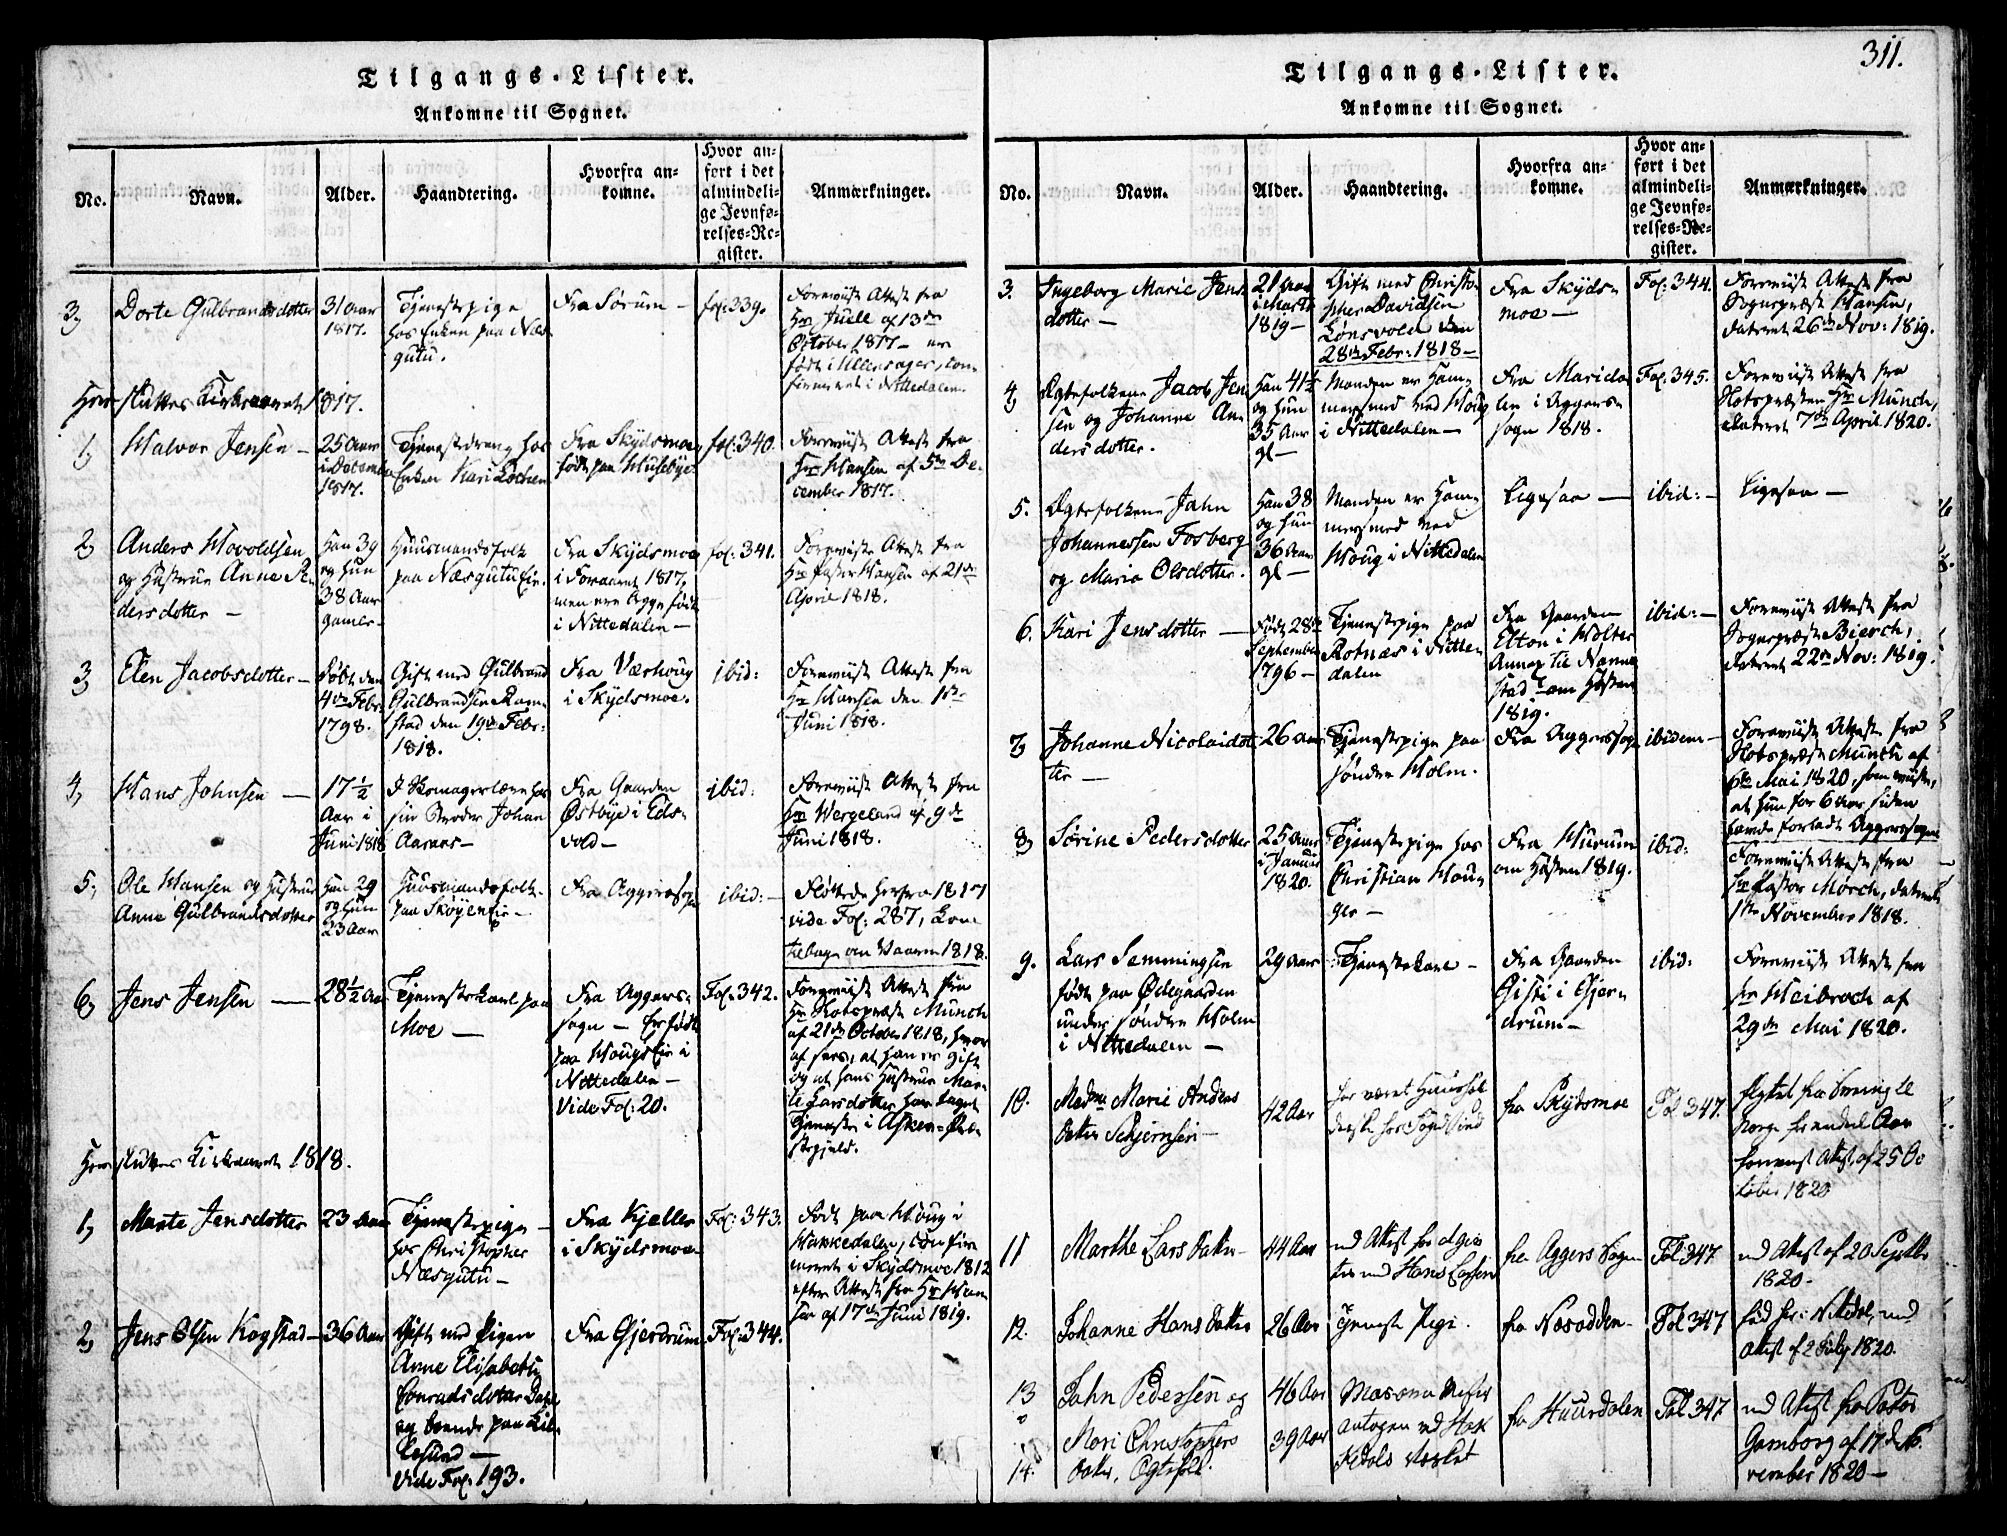 Tilgangs-Lister.
Ankomne til Sognet.
No.
Navn.
Alder.
Haandtering.
Hvorfra an-
komne.
Hvor an-
ført i det
almindeli-
ge Jevnfø-
relses-Re-
gister.
Anmærkninger.
3,
Dorte Gulbrandsdotter
31 Aar
1817.
Tjenestepige
hos Enken paa Næs-
gutu.
Fra Sørum -
fol: 339.
Foreviist Attest fra
Hr Juell af 13de
October 1817 - er
født i Ullensager, con-
firmeret i Nittedalen.
Her sluttes Kirkeaaret 1817.
1,
Halvor Jensen -
25 Aar
i Decemb.
1817.
Tjenestedreng hos
Enken Kari Løchen
Fra Skydsmoe
født paa Husebye
fol: 340.
Foreviist Attest fra
Hr Hansen af 5te De-
cember 1817.
2,
Anders Hovoldsen
og Hustrue Anne An-
dersdotter -
Han 39
og hun
38 Aar
gamle -
Huusmandsfolk
paa NæsgutuEie.
Fra Skydsmoe
i Foraaret 1817,
men ere begge født
i Nittedalen -
fol: 341.
Foreviist Attest fra
Hr Pastor Hansen af 21de
April 1818.
3
Elen Jacobsdotter -
Døbt den
4de Febr:
1798.
Gift med Gulbrand
Gulbrandsen Ram-
stad den 19de Febr:
1818.
Fra Værhoug
i Skydsmoe.
ibid:
Foreviist Attest fra
Hr Hansen den 1ste
Juni 1818.
4,
Hans Johnsen -
17½
Aar i
Juni 1818
I Skomagerlære hos
sin Broder Johan
Aaraas -
Fra Gaarden
Østbye i Eds-
vold -
ibid:
Foreviist Attest fra
Hr Wergeland af 9de
Juni 1818.
5,
Ole Hansen og Hustrue
Anne Gulbrandsdotter
Han 29
og hun
23 Aar
Huusmandsfolk
paa SkøyenEie -
Fra Aggersogn
ibid: -
Fløttede herfra 1817
vide Fol: 287, kom
tilbage om Vaaren 1818.
6,
Jens Jensen -
28½ Aar
Tjenestekarl paa
Moe -
Fra Aggers-
sogn - Er født
paa HougsEie i
Nittedalen -
Vide Fol: 20.
Fol: 342.
Foreviist Attest fra
Hr Slotspræst Munch
af 21de October 1818, hvor-
af sees, at han er gift
og at hans Hustrue Mar-
te Larsdotter har taget
Tjeneste i Asker-Præ-
stegjeld.
Her sluttes Kirkeaaret 1818.
1,
Marte Jensdotter
23 Aar
Tjenestepige -
hos Christopher
Næsgutu -
Fra Kjeller
i Skydsmoe
Fol: 343.
Født paa Houg i
Hakkedalen, confir-
meret i Skydsmoe 1812
efter Attest fra Hr Han-
sen af 17de Juni 1819.
2,
Jens Olsen Kogstad -
36 Aar
Gift med Pigen
Anne Elisabeth
Conradsdotter Dahl
og boende paa Lil-
lesund -
Vide Fol: 193.
Fra Gjerdrum
Fol: 344.
311.
Tilgangs-Lister.
Ankomne til Sognet.
No.
Navn.
Alder.
Haandtering.
Hvorfra an-
komne.
Hvor an-
ført i det
almindeli-
ge Jevnfø-
relses-Re-
gister.
Anmærkninger.
3.
Ingeborg Marie Jens-
dotter -
21 Aar
i Marts
1819 -
Gift med Christo-
pher Davidsen
Lønsvold den
28de Febr: 1818 -
Fra Skyds-
moe -
Fol: 344.
Foreviist Attest fra
Sognepræst Hansen,
dateret 26de Nov: 1819.
4,
Ægtefolkene Jacob Jen-
sen og Johanne An-
dersdotter.
Han 41½
og hun
35 Aar
gl -
Manden er Ham-
mersmed ved Houg
i Nittedalen -
Fra Marida-
len i Aggers-
sogn 1818.
Fol: 345.
Foreviist Attest fra
Slotspræsten Hr Munch,
dateret 7de April 1820.
5.
Ægtefolkene Jahn
Johannessen Fosberg
og Maria Olsdotter.
Han 38
og hun
36 Aar
gl -
Manden er Ham-
mersmed ved
Houg i Nittedalen
Ligesaa -
ibid: -
Ligesaa -
6.
Kari Jensdotter -
Født 28de
September
1796 -
Tjenestepige paa
Rotnæs i Nitte-
dalen
Fra Gaarden
Elton i Holter
Annex til Nanne-
stad om Høsten
1819.
ibid: -
Foreviist Attest fra
Sognepræst Bierch,
dateret 22de Nov: 1819.
7,
Johanne Nicolaidot-
ter -
26 Aar
Tjenestepige paa
søndre Holm.
Fra Aggerssogn
ibidem -
Foreviist Attest fra
Slotspræst Munch af
6te Mai 1820, som viiste,
at hun for 6 Aar siden
havde forladt Aggerssogn
8,
Sørine Pedersdotter
25 Aar
i Januar
1820.
Tjenestepige hos
Christian Hau-
ger -
Fra Hurum
om Høsten 1819.
ibid:
Foreviist Attest fra
Hr Pastor Mørch, dateret
1ste November 1818.
9.
Lars Semmingsen
født paa Ødegaarden
under søndre Holm
i Nittedalen -
29 Aar
Tjenestekarl -
Fra Gaarden
Gisti i Gjer-
drum -
ibid:
Foreviist Attest fra
Hr Heibroch af
29de Mai 1820.
10.
Madme Marie Anders
Datter Schjernsen -
42 Aar
har været Huushol-
derske hos
fra Skydsmoe
Fol 347.
flyttet fra
Norge for endeel Aar
foreviist Attest af 25 Oc-
tober 1820
11
Marthe Lars Datter -
44 Aar
ved Attest for at gif-
tes med Hans Larsen
fra Aggers Sogn
Fol 347
ved Attest af 20 Septbr
1820 -
12.
Johanne Hans Datter
26 Aar
Tjeneste Pige.
fra Nesodden -
Fol 347
fød her i Nittedal, ved
Attest af 2 July 1820.
13
14.
Jahn Pedersen og
Mari Christophers
Datter, Ægtefolk.
46 Aar
39 Aar
Masovn
antagen ved Hak-
kedals Værket
fra Huurdalen
Fol 347
ved Attest fra Pastor
Gamborg af 17de No-
vember 1820 -